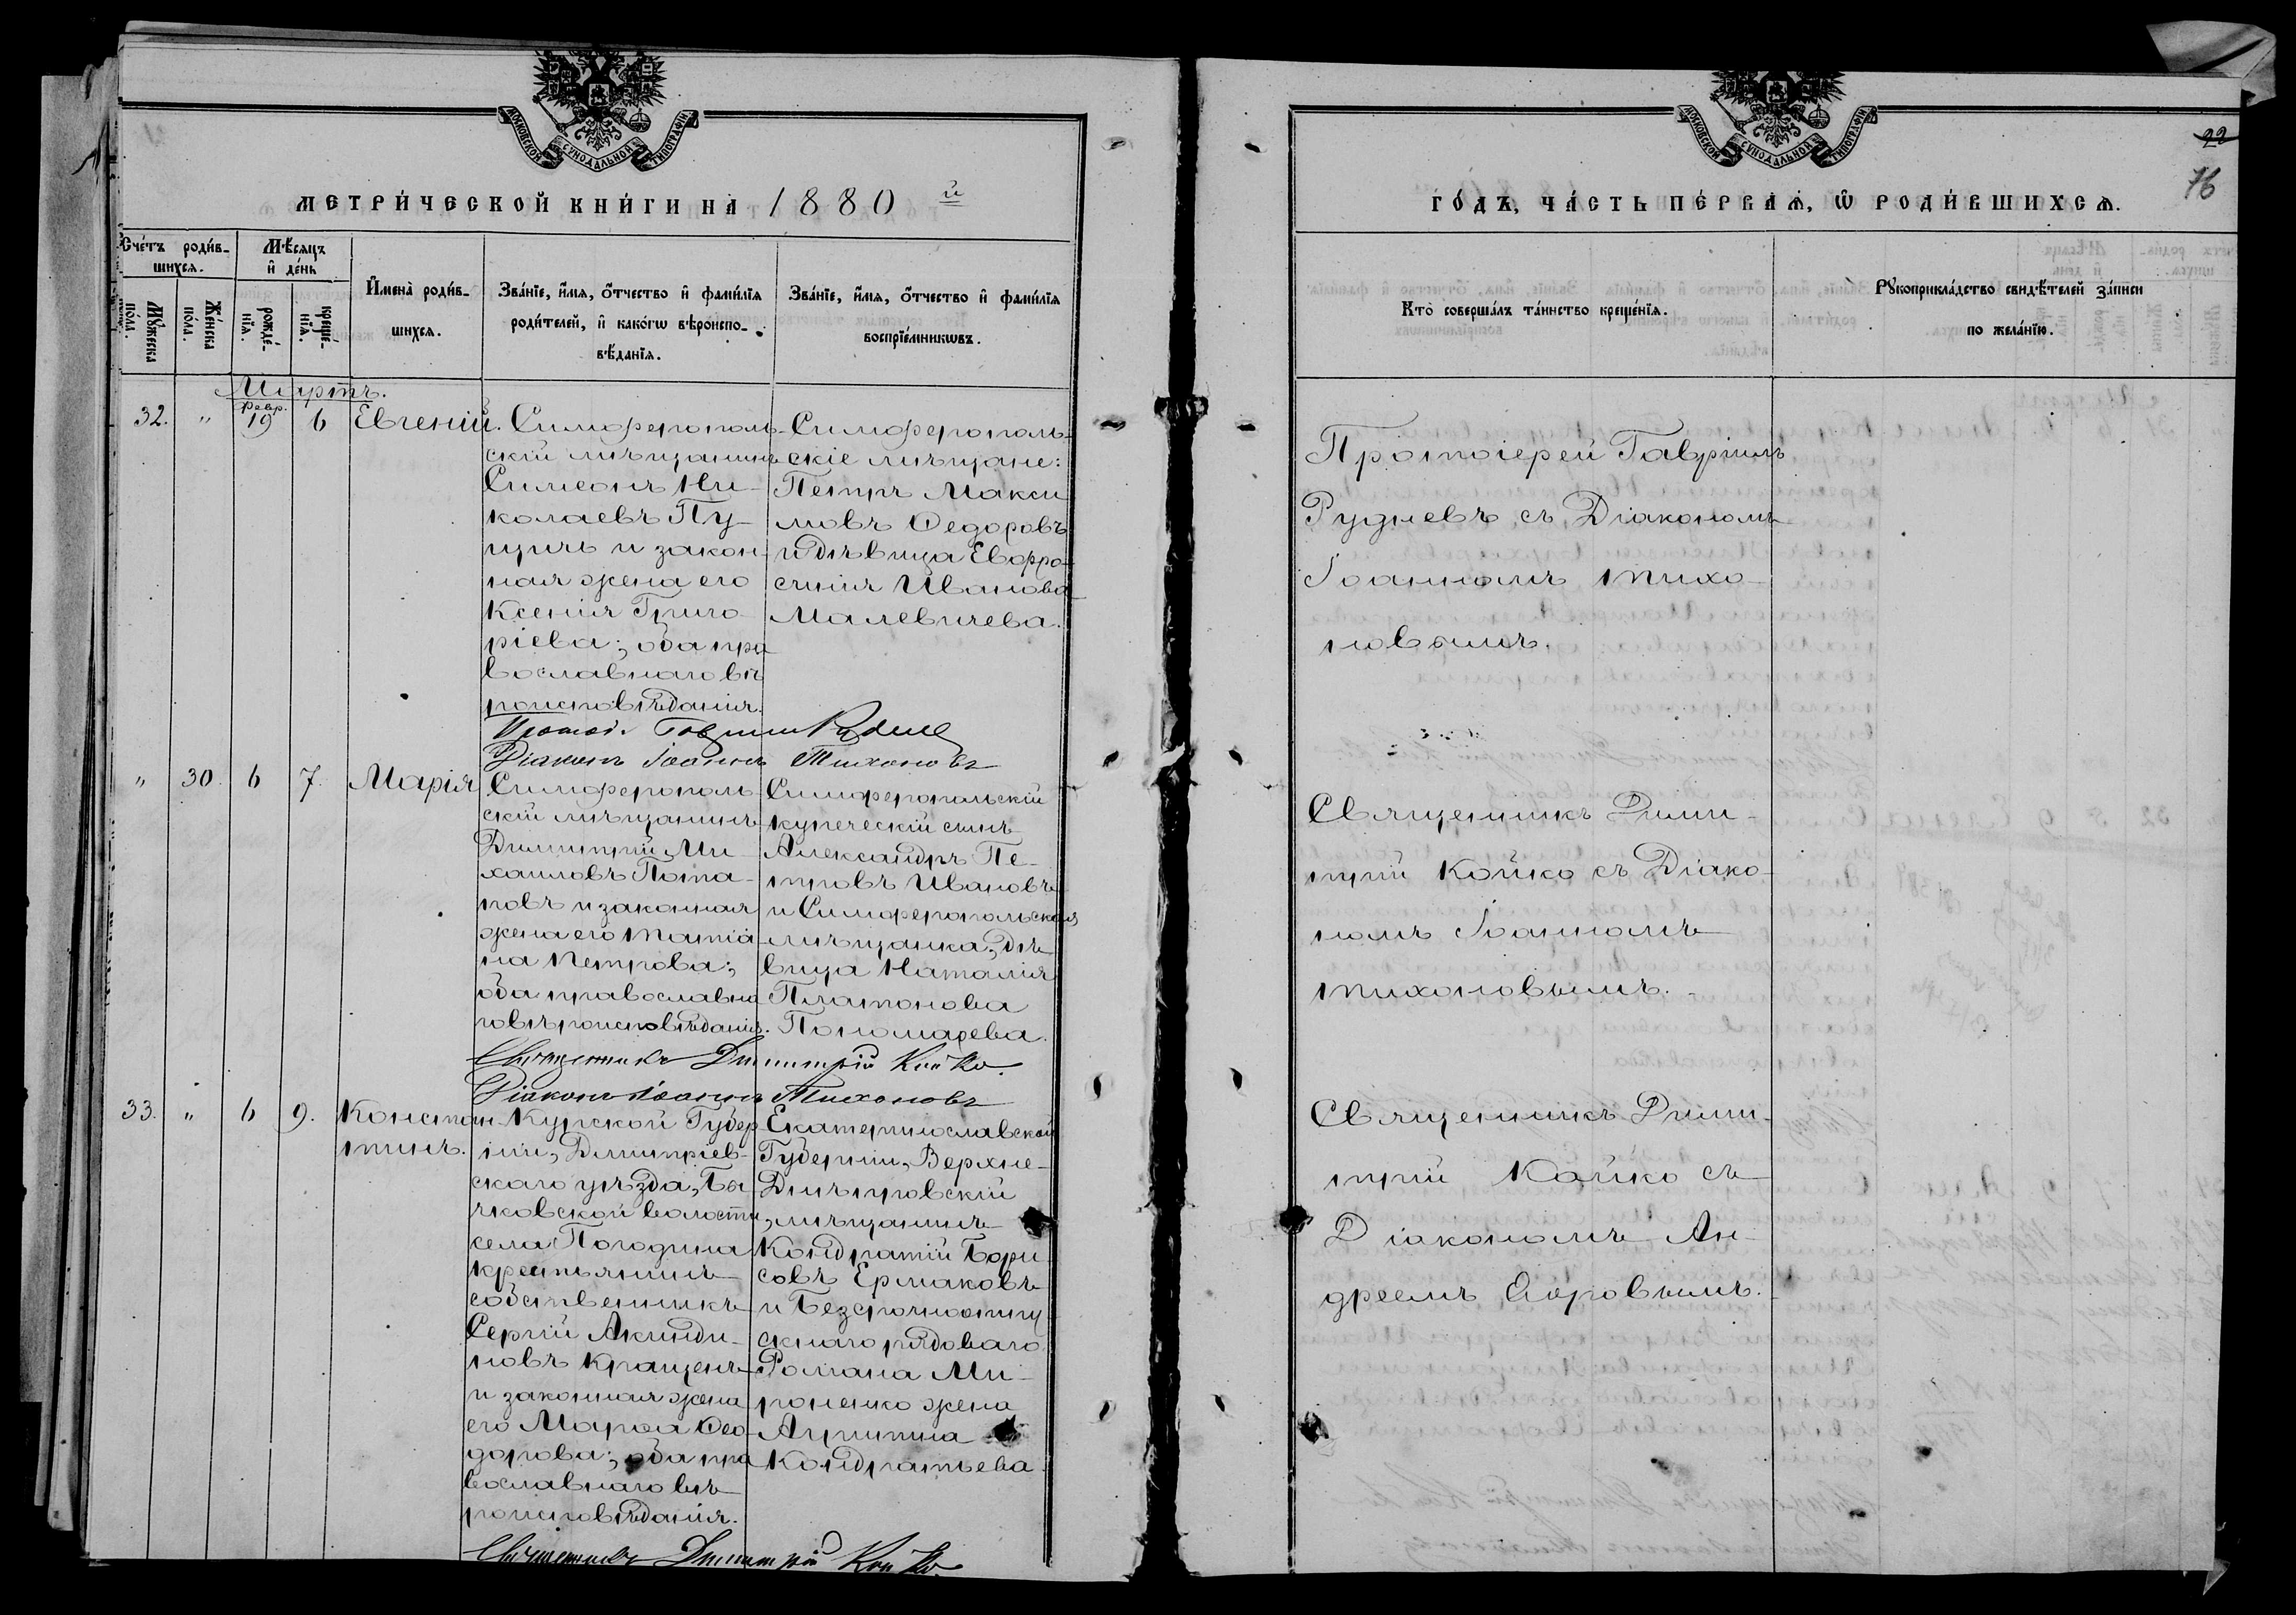 МОСКОВСКОЙ СѴНОДАЛЬНОЙ ТИПОГРАФІИ
МЕТРИ́ЧЕСКОЙ КНИ́ГИ НА 1880 й
Сче́тъ роди́в-
шихсѧ.
Мѣ́сяцъ
и҆ де́нь
Мꙋ́жеска
по́ла.
Же́нска
по́ла.
рожде́-
нїѧ.
креще́-
нїѧ.
И҆мена̀ роди́в-
шихсѧ.
Зва́нїе, и҆́мѧ, ѻ҆́тчество и҆ фами́лїѧ
роди́телей, и҆ како́гѡ вѣроиспо-
вѣ́данїѧ.
Зва́нїе, и҆́мѧ, ѻ҆́тчество и҆ фами́лїѧ
воспрїе́мникѡвъ.
Мартъ.
32. " Февр. 19 6 Евгеній.
Симферополь-
скій мѣщанинъ
Симеонъ Ни-
колаевъ Пу-
щичъ и закон-
ная жена его
Ксенія Григо-
ріева; оба пра
вославнаго вѣ
роисповѣданія.
Симферополь-
скіе мѣщане:
Петръ Макси
мовъ Ѳедоровъ
и дѣвица Евфро-
синія Иванова
Малевичева.
Діаконъ Іоаннъ Тихоновъ
" 30. 6 7. Марія
Симферополь-
скій мѣщанинъ
Димитрій Ми-
хаиловъ Пота-
повъ и законная
жена его Татіа-
на Петрова;
оба православна
го вѣроисповѣданія.
Симферопольскій
купеческій сынъ
Александръ Пе-
тровъ Ивановъ
и Симферопольская
мѣщанка, дѣ-
вица Наталія
Платонова
Пономарева.
Священникъ Димитрій Койко.
Діаконъ Іоаннъ Тихоновъ
33. " 6 9. Констан-
тинъ.
Курской Губер
ніи, Дмитріев-
скаго уѣзда, Бы
чковской волости
села Погодина
крестьянинъ
собственникъ
Сергій Акинди-
новъ Кращенъ
и законная жена
его Марѳа Ѳео-
дорова; оба пра
вославнаго вѣ-
роисповѣданія.
Екатеринославской
Губерніи, Верхне-
Днѣпровскій
мѣщанинъ
Кондратій Бори
совъ Ермаковъ
и Безсрочноотпу
скнаго рядоваго
Романа Ми-
роненко жена
Агрипина
Кондратьева
Священникъ Димитрій Койко.
МОСКОВСКОЙ СѴНОДАЛЬНОЙ ТИПОГРАФІИ
22
76
ГО́ДЪ, ЧА́СТЬ ПЕ́РВАѦ, Ѡ҆ РОДИ́ВШИХСѦ.
Кто̀ соверша́лъ та́инство креще́нїѧ.
Рꙋкоприкла́дство свидѣ́телей за́писи
по жела́нїю.
Протоіерей Гавріилъ
Рудневъ съ Діакономъ
Іоанномъ Тихо-
новымъ.
Священникъ Дими-
трій Койко съ Діако-
номъ Іоанномъ
Тихоновымъ.
Священникъ Дими-
трій Койко съ
Діакономъ Ан-
дреемъ